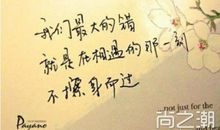 我们最大的错
就是在相遇的那一刻
不擦身而过
Payano
...not just for the
尚之潮